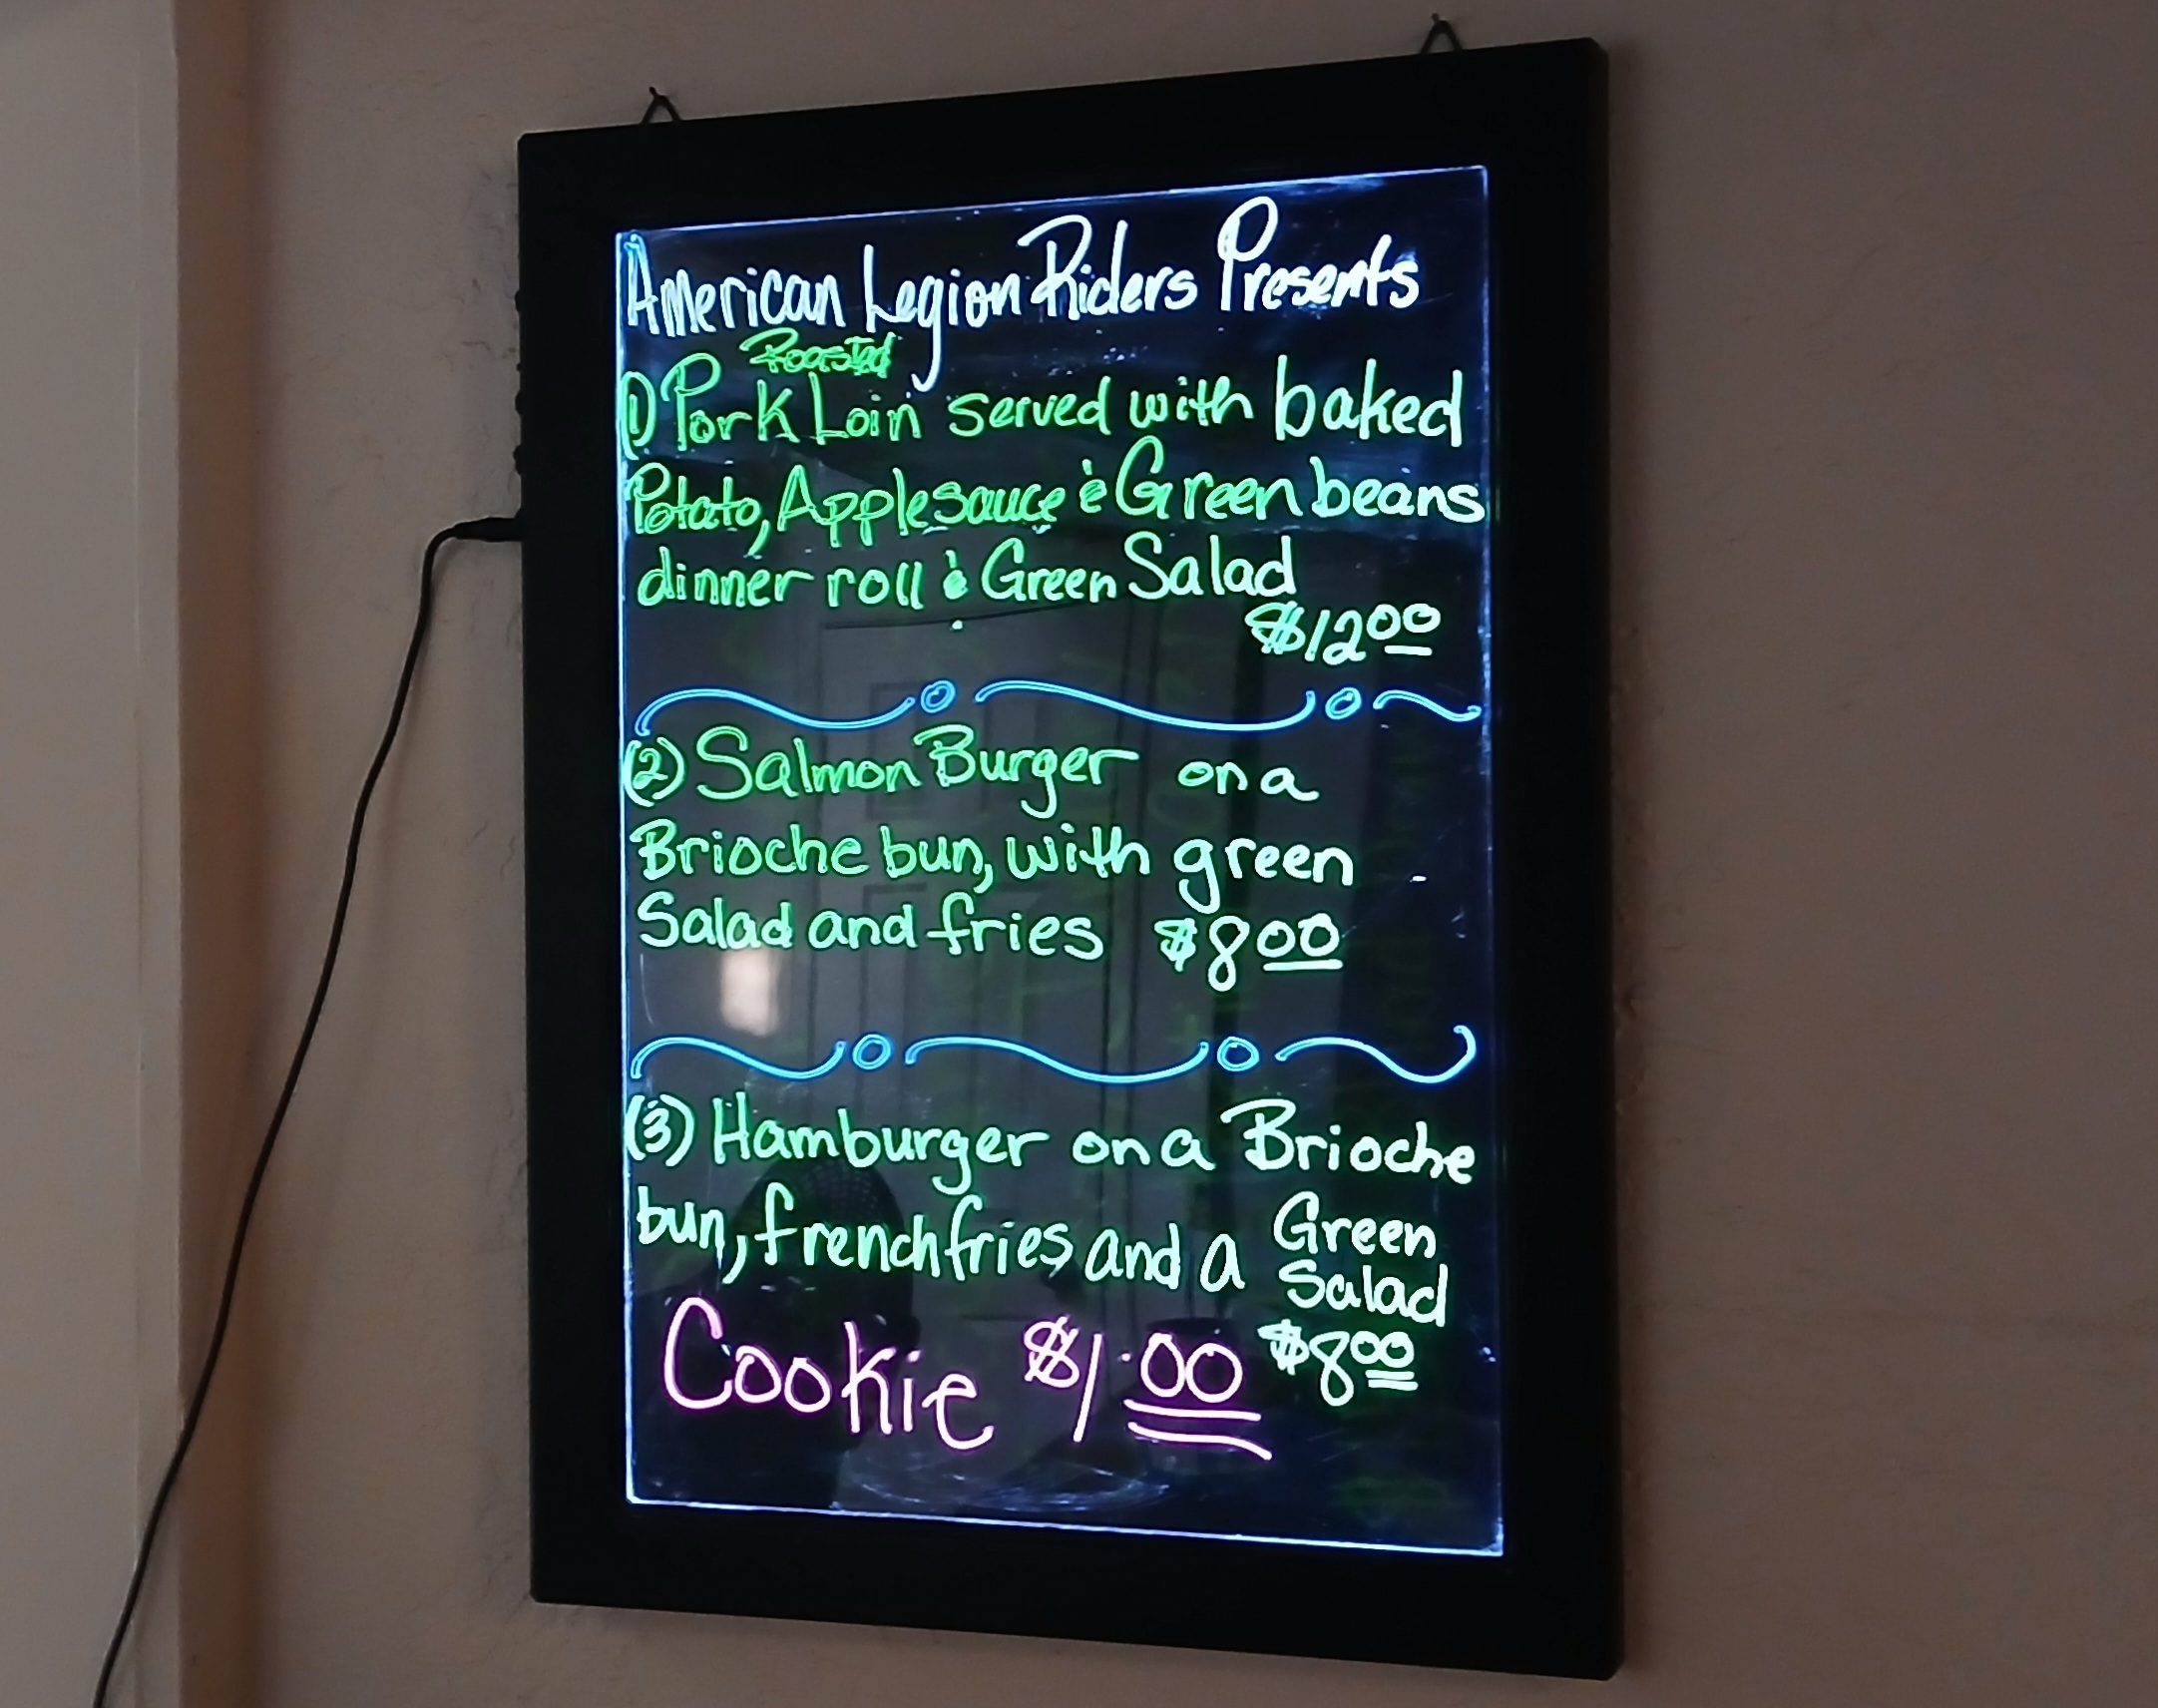 American Legion Riders Presents
Roasted
1) Pork Loin served with baked
Potato, Applesauce & Green beans
dinner roll & Green Salad
$12.00
(2) Salmon Burger on a
Brioche bun, with green
Salad and fries $8.00
(3) Hamburger on a Brioche
bun, french fries and a Green
Salad
$8.00
Cookie $1.00